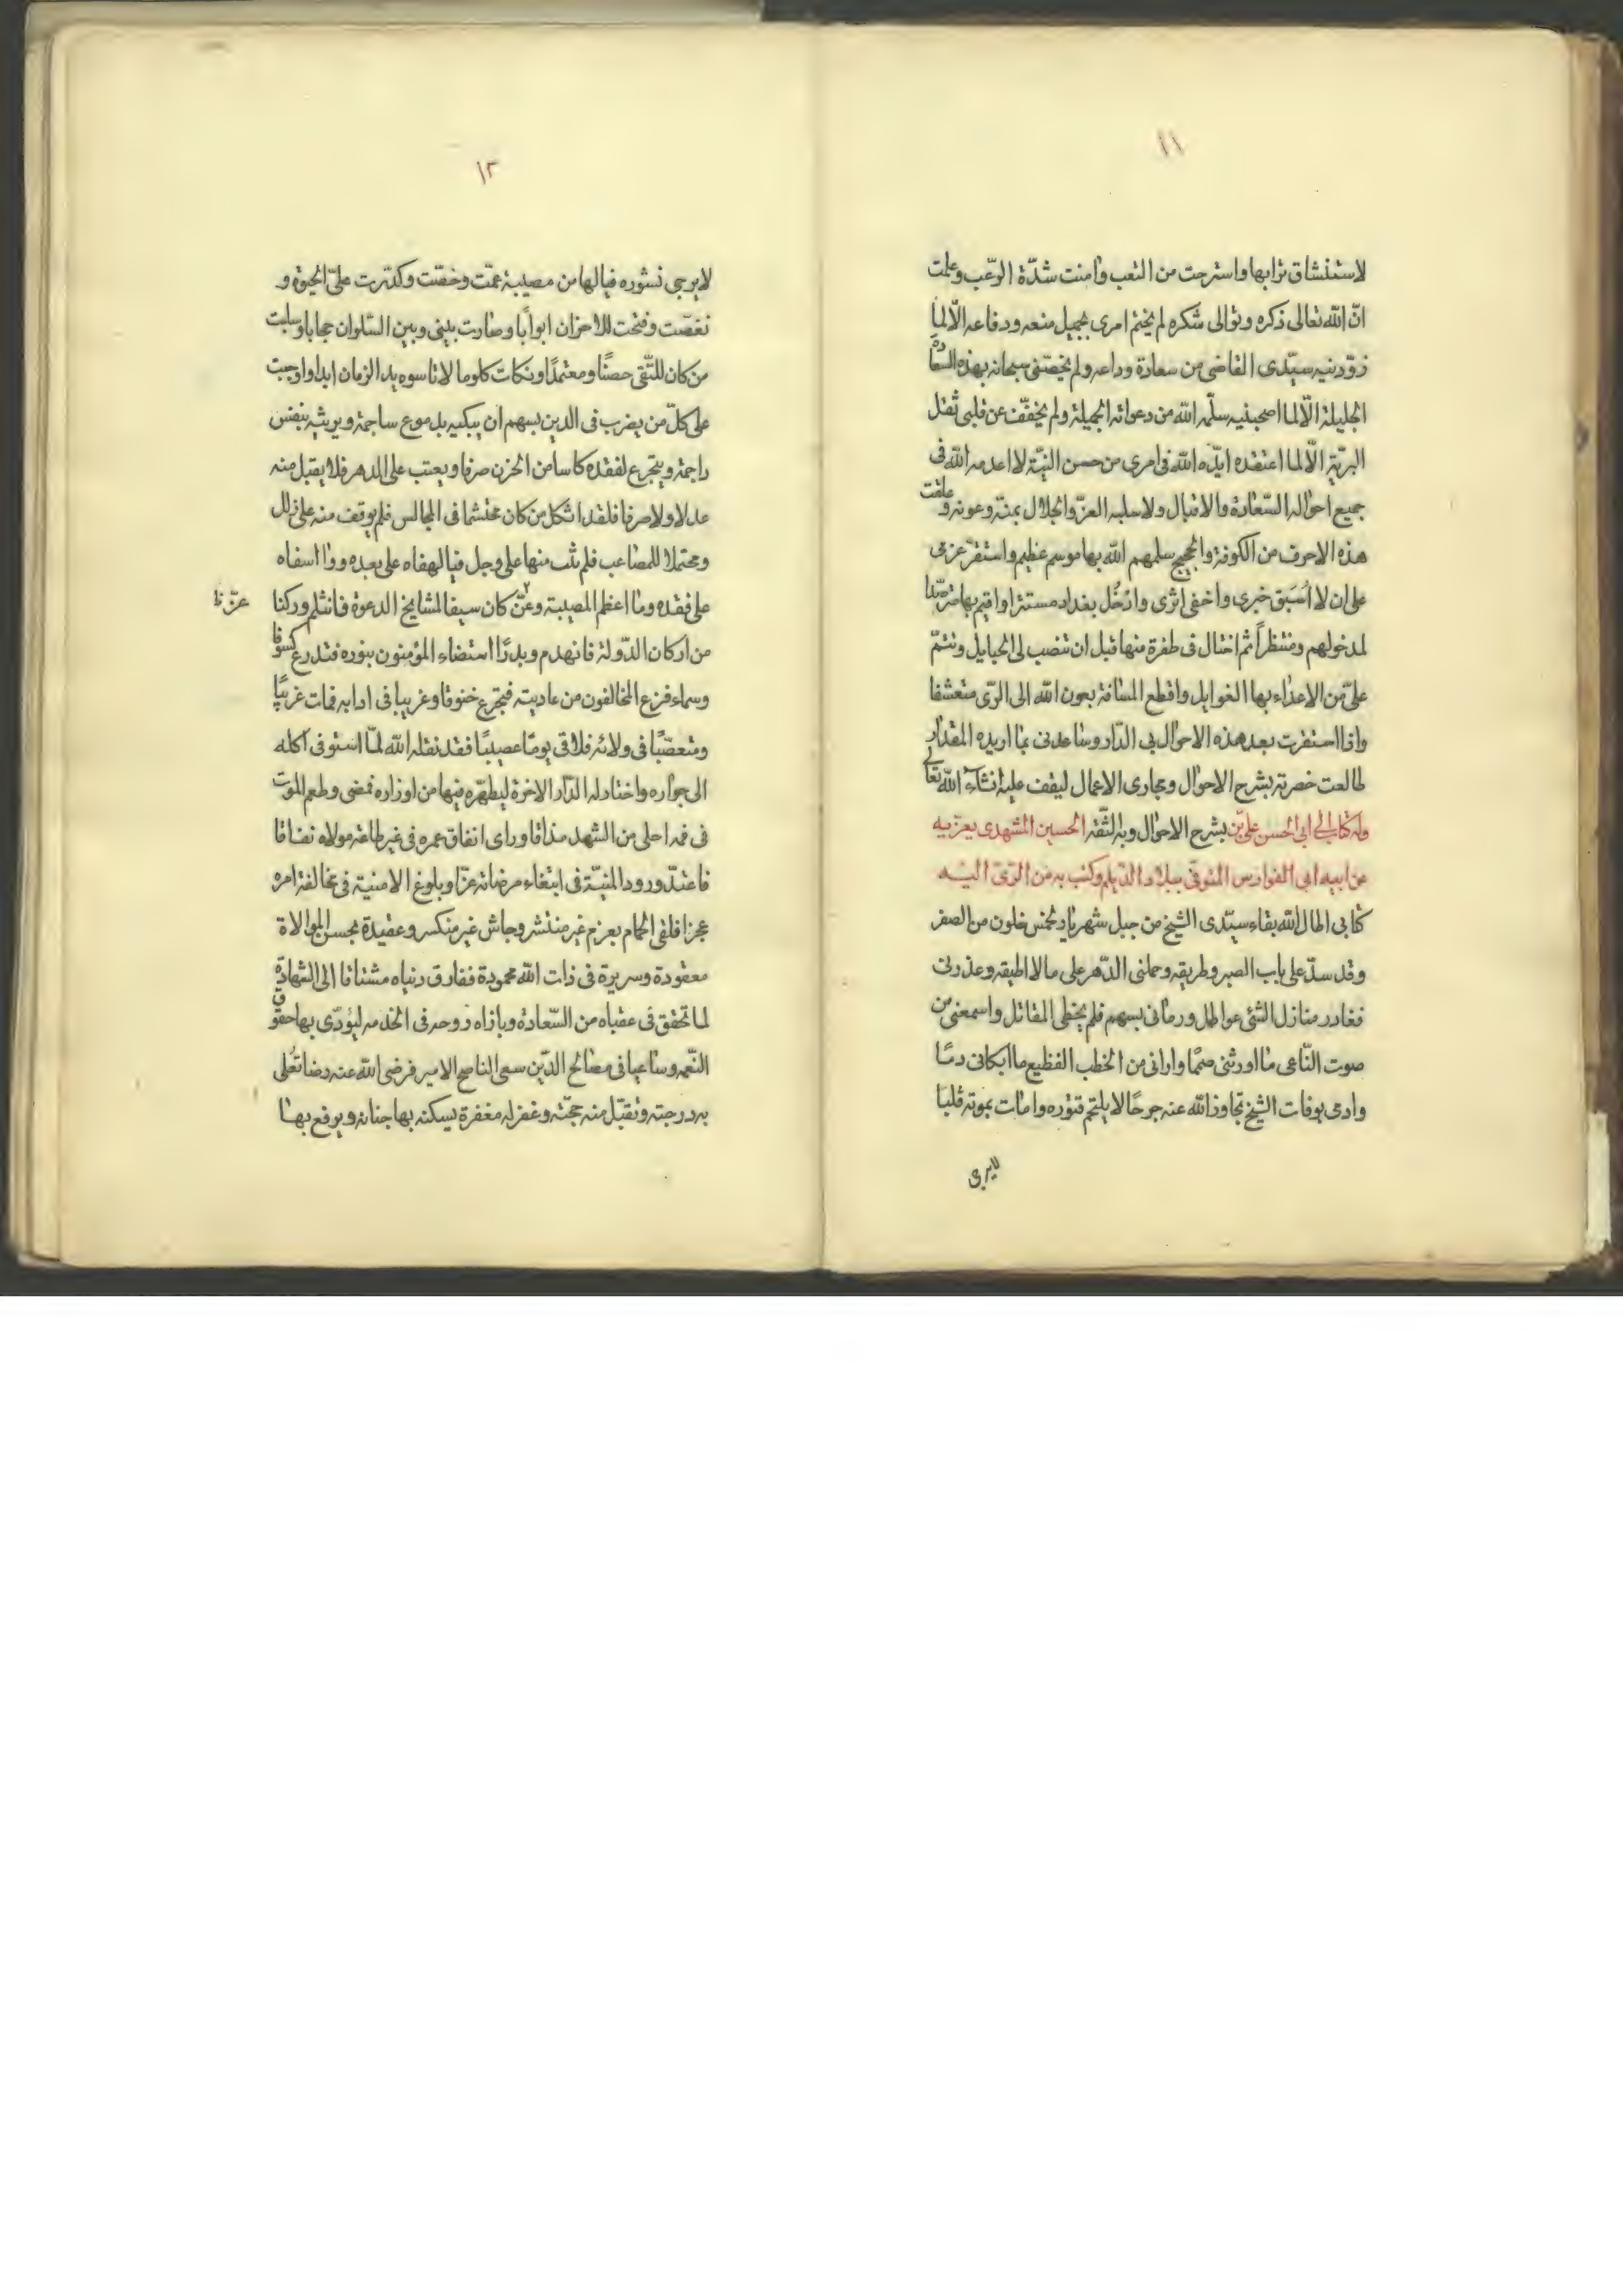 ١١
لاستنشاق ترابها واسترحت من التعب وامنت شدّة الرّعب وعلمت
انّ الله تعالى ذكره وتوالى شكره لم يختم امرى بجميل منعه ودفاعه الّا لما
زوّدنيه سيّدى القاضى من سعادة وداعه ولم يخصّنى سبحانه بهذه السعادة
الجليلة الّا لما اصحبنيه سلّمه الله من دعواته الجميلة ولم يخفّف عن قلبى ثقل
البريّة الّا لما اعتقده ايّده الله فى امرى من حسن النيّة لا اعدمه الله فى
جميع احواله السّعادة والاقبال ولا سلبه العزّ والجلال بمنّه وعونه وعلقت
هذه الاحرف من الكوفة والحجيج سلمهم الله بها موسم عظيم واستقرّ عزمى
على ان لا اسبق خبرى واخفى اثرى وادخل بغداد مستترا واقيم بها مترصّدا
لمدخولهم ومنتظراً ثم احتال فى طفرة منها قبل ان تنصب لى الحبايل وتتمّ
علىّ من الاعداء بها الغوايل واقطع المسافة بعون الله الى الرّى متعسّفا
واذا استقرت بعد هذه الاحوال بى الدّار وساعدنى بما اريده المقدار
طالعت حضرته بشرح الاحوال ومجارى الاعمال ليقف عليه انشاء الله تعالى
وله كتاب الى ابى الحسن علىّ بن بشرح الاحوال وبه الثّقة الحسين المشهدى يعزّيه
عن ابيه ابى الفوارس المتوفّى ببلاد الدّيلم وكتب به من الرّى اليه
كتابى اطال الله بقاء سيّدى الشيخ من جبل شهريار لخمس خلون من الصفر
وقد سدّ على باب الصبر وطريقه وحملنى الدّهر على ما لا اطيقه وعذرنى
فغادر منازل الشئ عواطل ورمانى بسهم فلم يخطى المقاتل واسمعنى من
صوت النّاعى ما اورثنى صمّا وارانى من الخطب الفظيع ما ابكانى دمّا
وادمى بوفات الشيخ تجاوز الله عنه جرحًا لا يلتحم فتوره وامات بموته قلبا
لايرجى
١٢
لا يرجى نشوره فيالها من مصيبة عمّت وخصّت وكدّرت علىّ الحيوة و
نغصّت وفتحت للاحزان ابوابًا وصارت بينى وبين السّلوان حجابا وسلبت
من كان للتّقى حصنًا ومعتمدًا ونكات كلوما لا تاسوه يد الزمان ابدا واوجبت
على كلّ من يضرب فى الدين بسهم ان يبكيه بدموع ساجمة ويرثيه بنفس
راجمة ويتجرع لفقده كاسا من الحزن صرفا ويعتب على الدهر فلا يقبل منه
عدلا ولا صرفا فلقد اثكل من كان محتشما فى المجالس فلم يوقف منه على زلل
ومحتملا للمصاعب فلم يثب منها على وجل فيا لهفاه على بعده ووا اسفاه
على فقده وما اعظم المصيبة وعنّ كان سيفا لمشايخ الدعوة فانثلم وركنا
عزّ نا
من اركان الدّولة فانهدم وبدرًا استضاء المؤمنون بنوره فتدرع كسوفا
وسماء فزع المخالفون من عاديته فتجرع خنوقا وغريبا فى ادابه فمات غريبًا
ومتعصّبًا فى ولائه فلاقى يومًا عصيبًا فقد نقله الله لمّا استوفى اكله
الى جواره واختار له الدّار الاخرة ليطهّره فيها من اوزاره فمضى وطعم الموت
فى فمه احلى من الشهد مذاقا وراى انفاق عمره فى غير طاعة مولاه نفاقا
فاعتدّ ورود المنيّة فى ابتغاء مرضاته عزّا وبلوغ الامنية فى مخالفة امره
عجزا فلقى الحمام بعزم غير منتشر وجاش غير منكسر وعقيدة بحسن الموالاة
معقودة وسريرة فى ذات الله محمودة ففارق دنياه مشتاقا الى الشهادة
لما تحقق فى عقباه من السّعادة وبازاه روحه فى الخدمه ليؤدّى بها حقوق
النّعمه وساعيا فى مصالح الدّين سعى الناصح الامير فرضى الله عنه رضا تعلى
به درجته وتقبّل منه حجّته وغفر له مغفرة يسكنه بها جنانه ويرفع بها